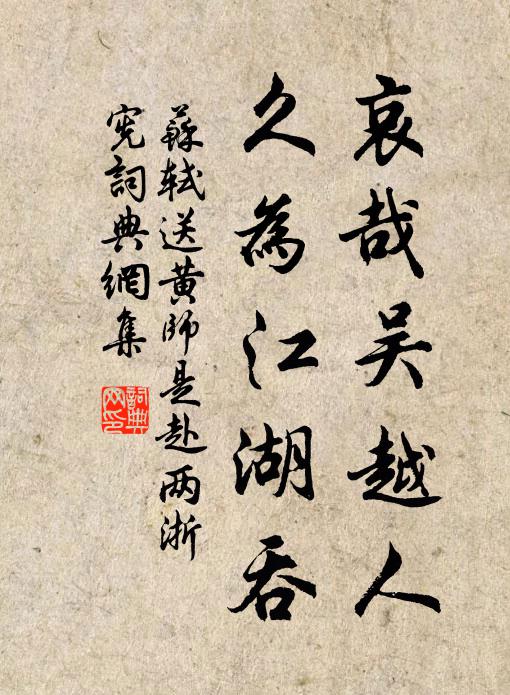 哀哉吴越人
久為江湖吞
蘇軾送黄師是赴两浙
宪詞典網集
詞典网印